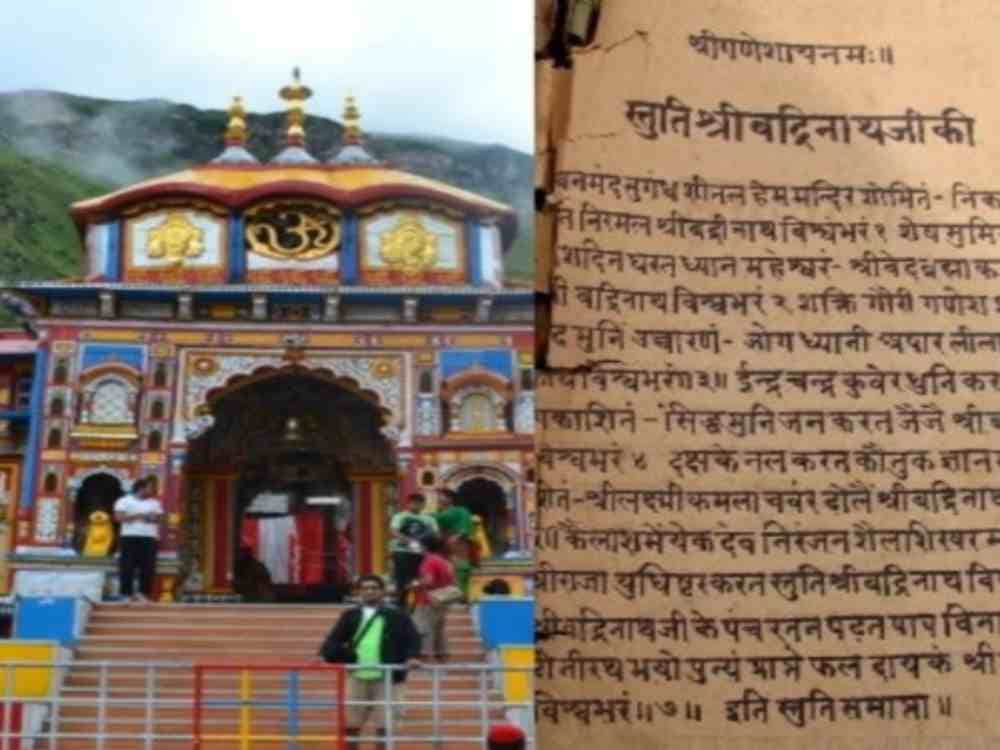 श्रीगणेशायनमः॥
स्तुति श्री बद्रिनाथजी की
पवनमंद सुगंध शीतल हेम मन्दिर शोभितं - निक
त निरमल श्रीबद्रीनाथ विश्वभरं १ शेष सुमि
शदिन घरत ध्यान महेश्वरं - श्रीवेदब्रह्मा क
बद्रिनाथ विश्वभरं २ शक्ति गौरी गणेश
द मुनि उच्चारणं - जोग ध्यानी अपार लीला
विश्वभरं॥३॥ ईन्द्र चन्द्र कुवेर धुनि कर
काशितं - सिद्ध मुनिजन करत जैजै श्री
विश्वभरं ४ दक्ष के नल करत कौतुक ज्ञान
श्रीलक्ष्मी कमला चवंर दोलैं श्रीबद्रिनाथ
कैलाश में येक देव निरंजन शैल शिखर
श्रीराजा युधिष्टर करत स्तुति श्रीबद्रिनाथ वि
श्रीबद्रिनाथजी के पंच रतन पढ़त पाप विना
तीरथ भयो पुन्यं प्राप्ते फल दायकं श्री
विश्वभरं॥७॥ इति स्तुति समाप्ता॥